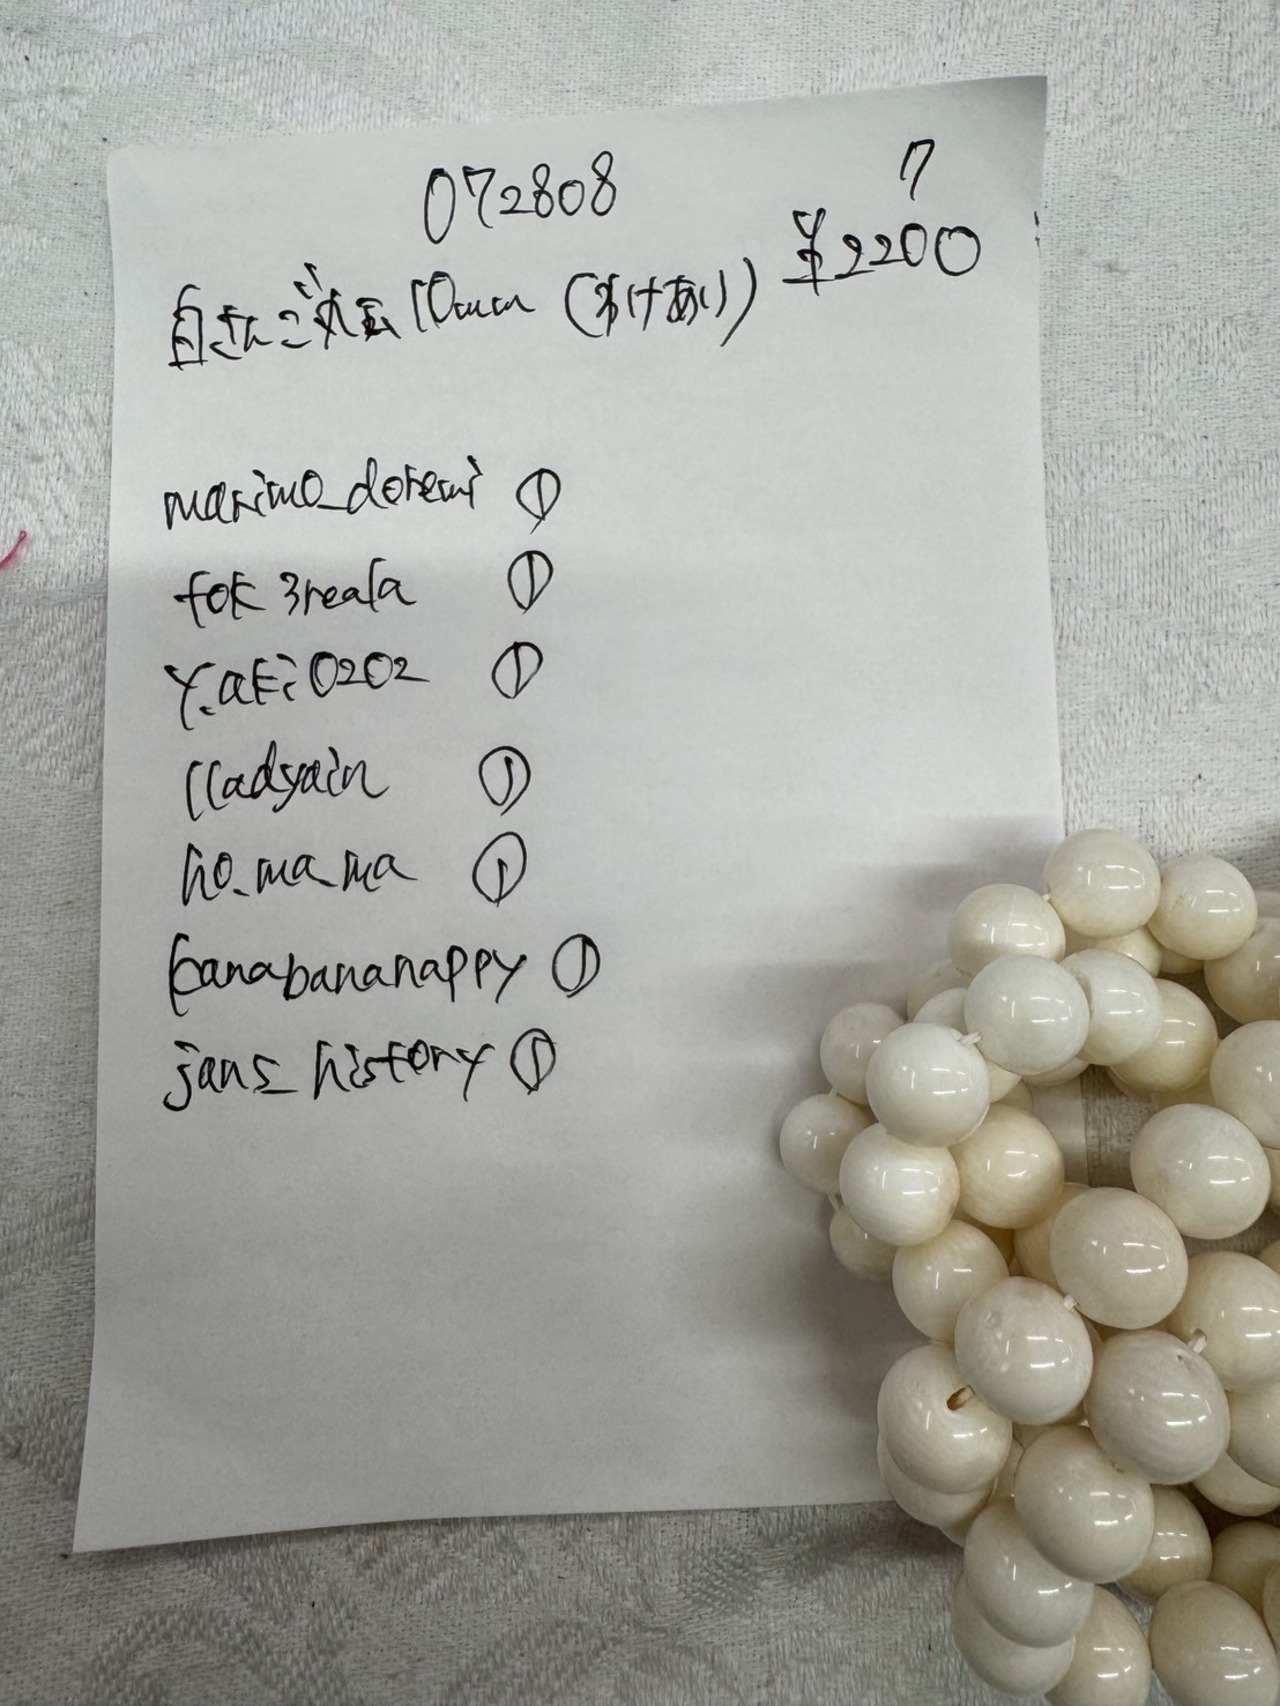 072808 7
白さんご丸玉10mm (わけあり) ¥2200
marimo_doremi ①
fok3reala ①
y.aki0202 ①
lladyain ①
ho_ma_ma ①
kanabananappy ①
jans_history ①